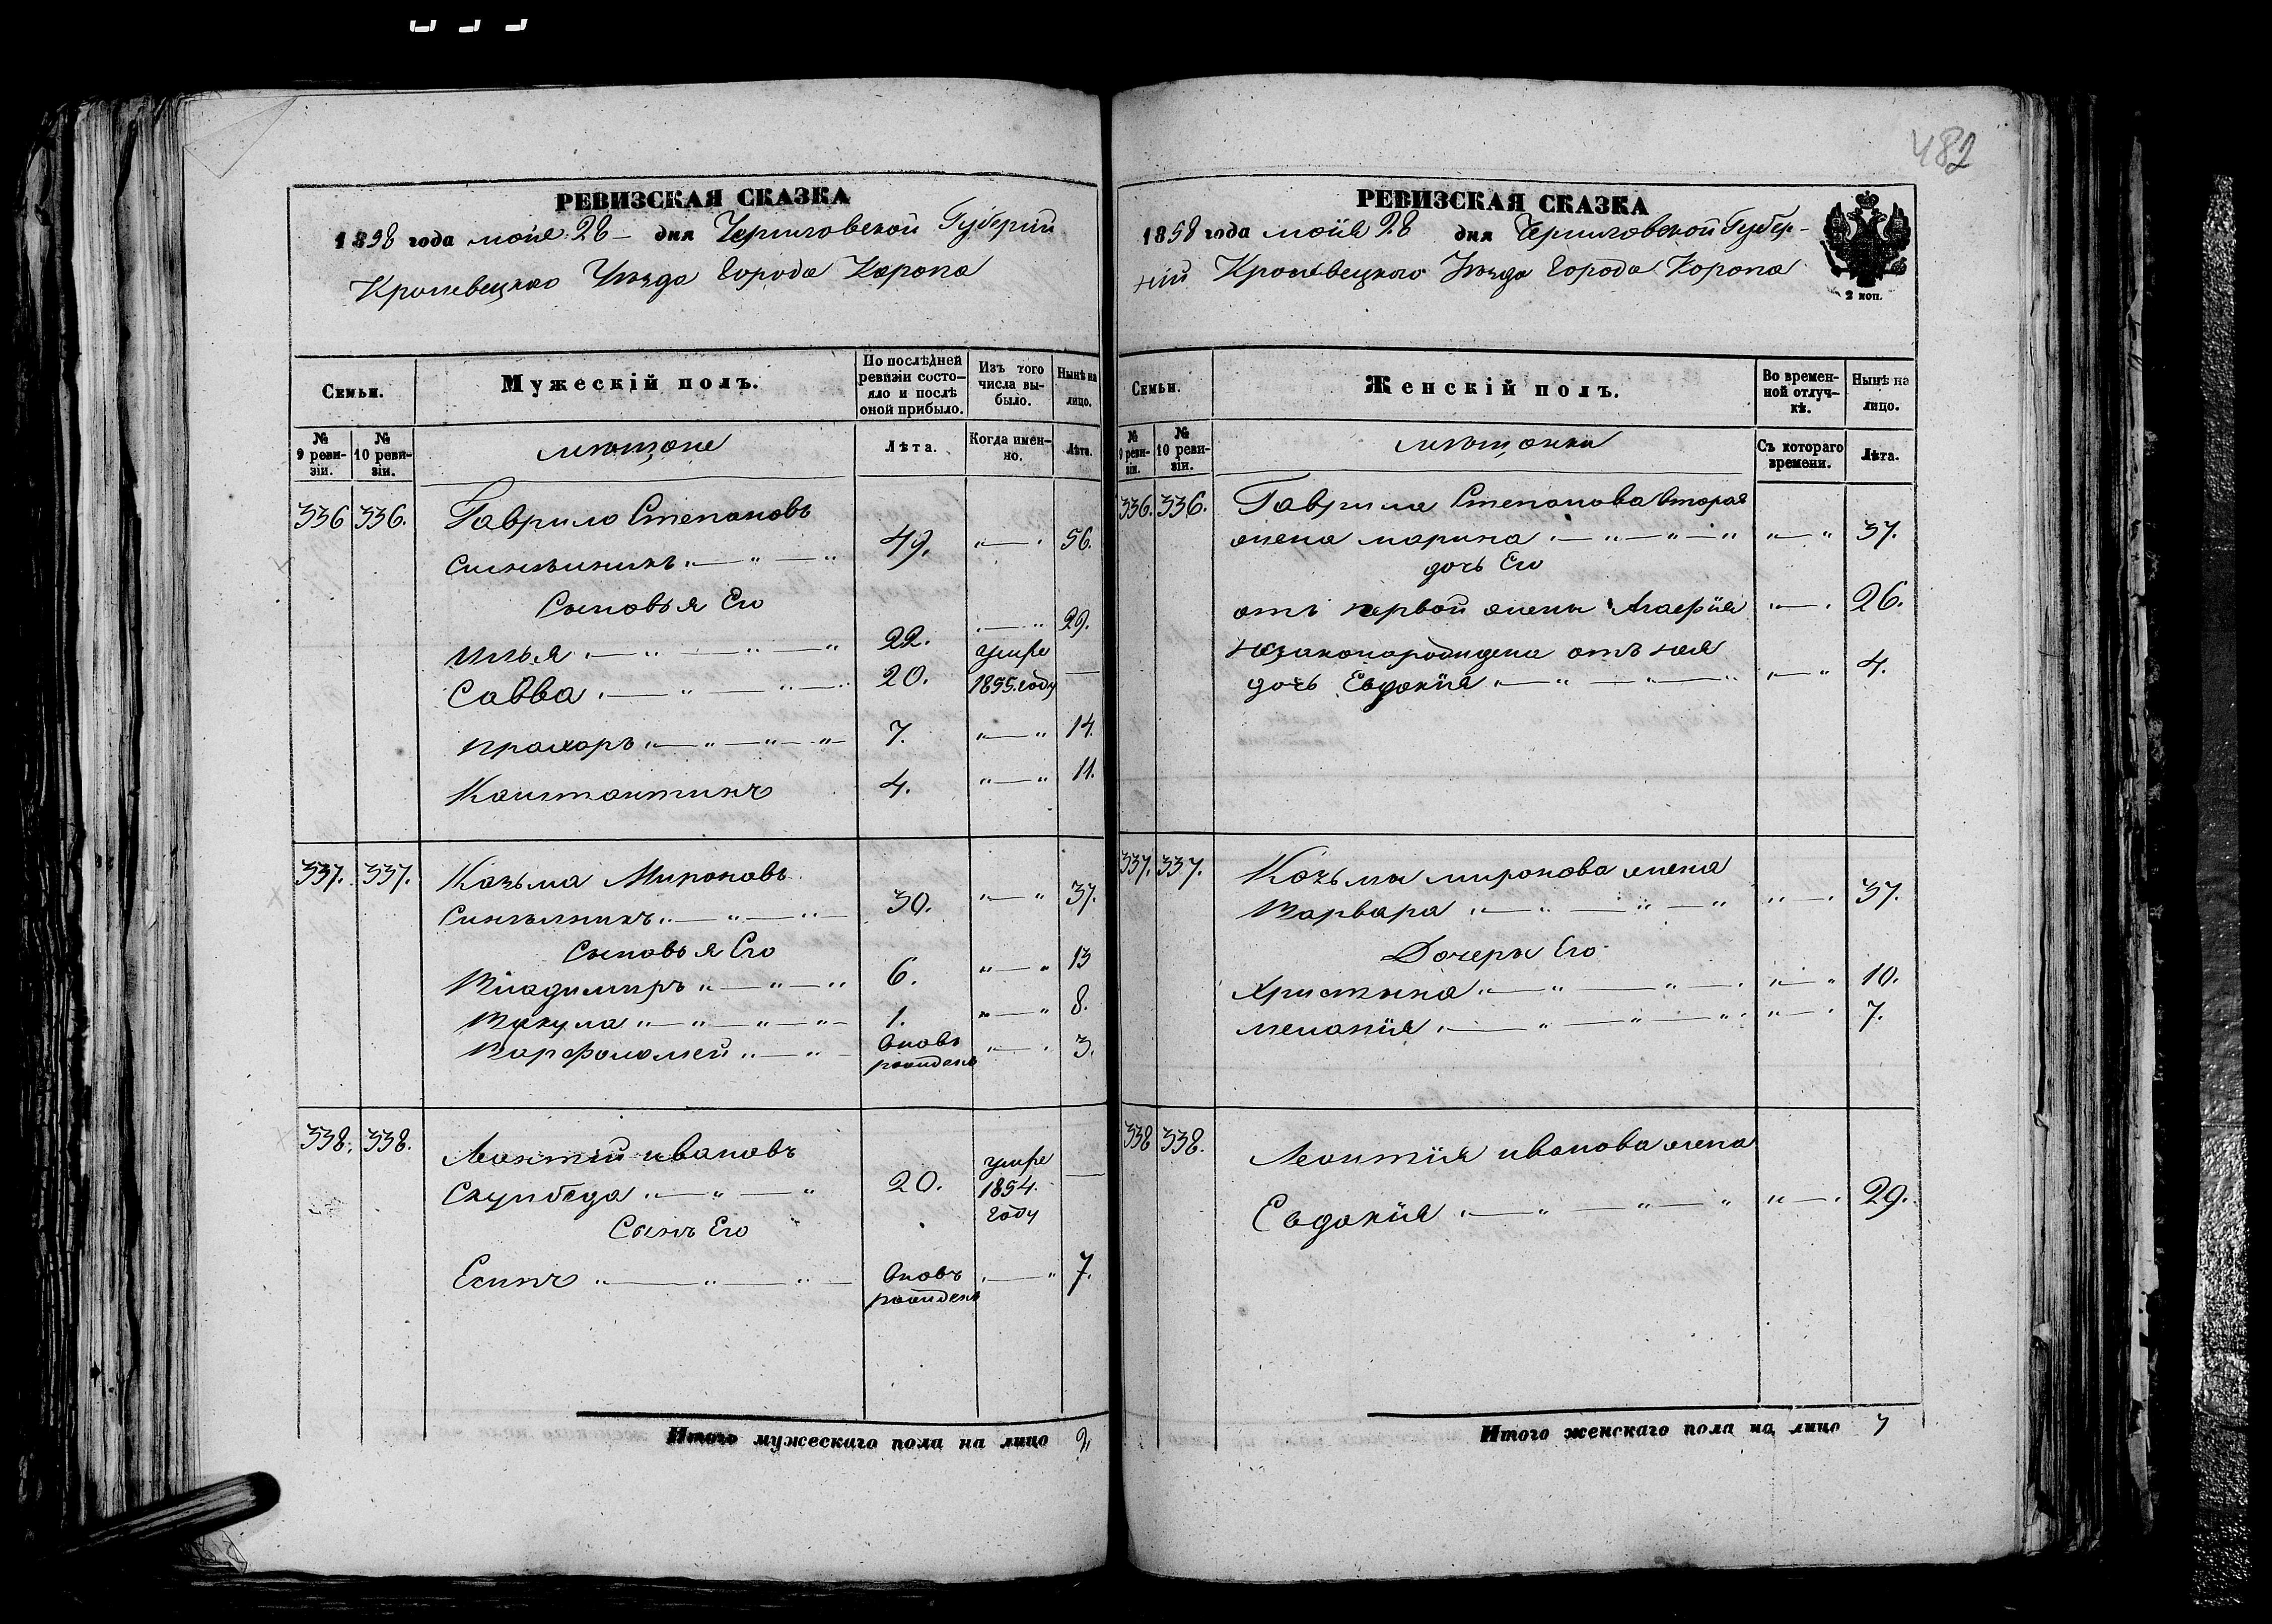 482
РЕВИЗСКАЯ СКАЗКА
1858 года мая 28 дня Черниговской Губернiи
Кролевецкаго Уѣзда Города Коропа
Семьи.
Мужескiй полъ.
По послѣдней ревизiи состо-
яло и послѣ оной прибыло.
Изъ того числа вы-
было.
Нынѣ на лицо.
№ 9 реви-
зiи.
№ 10 реви-
зiи.
мѣщане
Лѣта.
Когда имен-
но.
Лѣта.
336 336. Гаврило Степановъ
49. 56.
Сыновья Его
Илья 22. 29.
Савва 20. умре 1855. году
Прохоръ 7. 14.
Константинъ 4. 11.
337. 337. Козьма Мироновъ
30. 37.
Сыновья Его
Владимиръ 6. 13
Вакула 1. 8.
Варфоломей вновь рожденъ 3.
338. 338. Леонтiй ивановъ
Скупбеда 20. умре 1854. году
Сынъ Его
Есипъ вновь рожденъ 7.
Итого мужескаго пола на лицо
РЕВИЗСКАЯ СКАЗКА
1858 года мaiя 28 дня Черниговской Губер-
нiй Кролевецкого Уѣзда Города Коропа
2 коп.
Семьи.
Женскiй полъ.
Во времен-
ной отлуч-
кѣ.
Нынѣ на лицо.
№ 9 реви-
зiи.
№ 10 реви-
зiи.
мѣщанки
Съ котораго времени.
Лѣта.
336. 336. Гаврила Степанова вторая
жена марина 37.
дочь Его
отъ первой жены Агафiя 26.
незаконорождена отъ нея
дочь Евдокiя 4.
337. 337. Козьмы миронова жена
Варвара 37.
Дочеры Его
Христина 10.
меланiя 7.
338 338. Леонтiя иванова жена
Евдокiя 29.
Итого женскаго пола на лицо 7